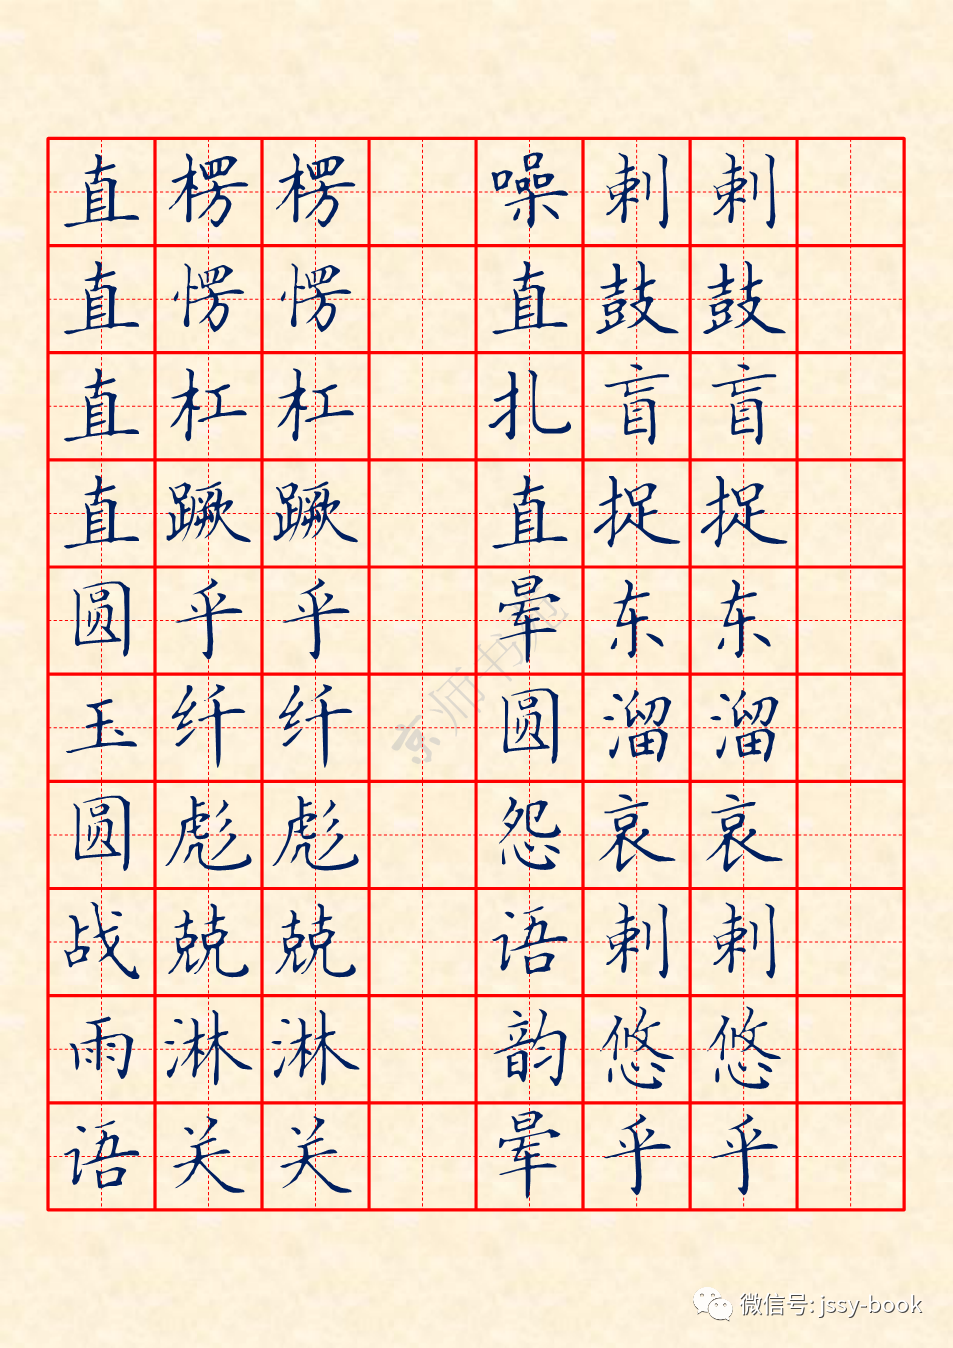 直楞楞 噪剌剌
直愣愣 直鼓鼓
直杠杠 扎盲盲
直蹶蹶 直捉捉
圆乎乎 晕东东
玉纤纤 圆溜溜
圆彪彪 怨哀哀
战兢兢 语剌剌
雨淋淋 韵悠悠
语关关 晕乎乎
京师书苑
微信号: jssy-book